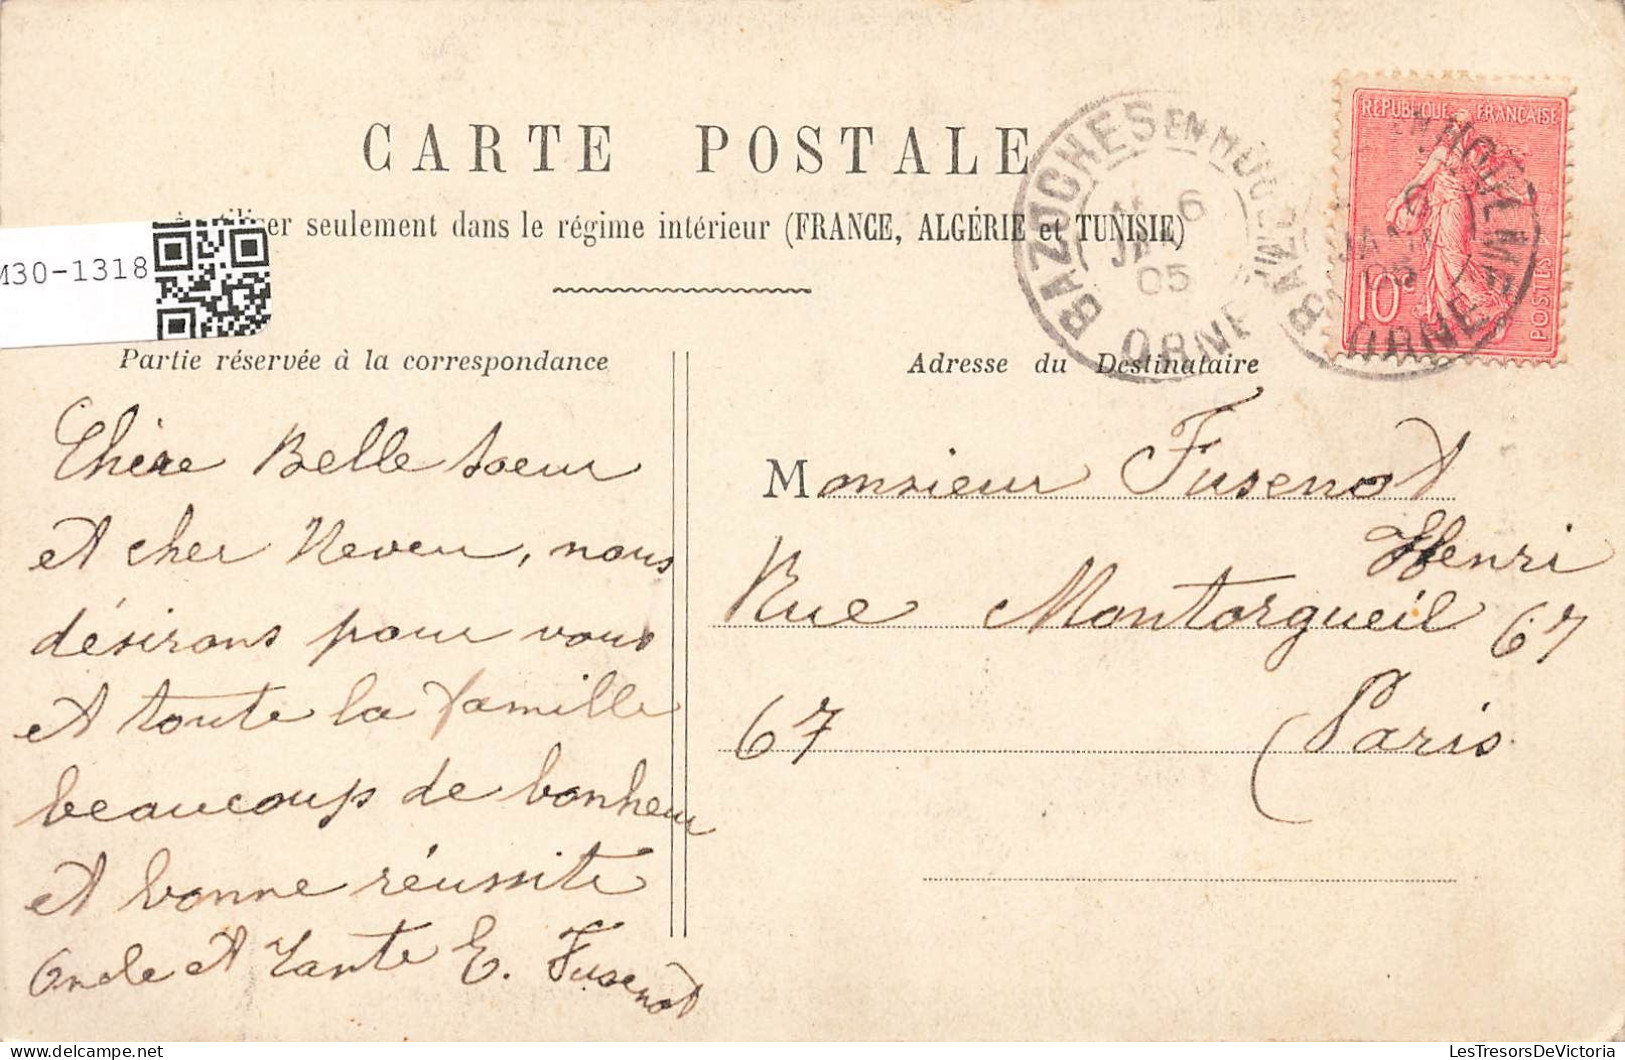 CARTE POSTALE
seulement dans le régime intérieur (FRANCE, ALGÉRIE et TUNISIE)
M30-1318
BAZOCHES EN HOULME
6
JANV
05
ORNE
REPUBLIQUE FRANÇAISE
10
POSTES
BAZOCHES EN HOULME
6
JANV
05
ORNE
Partie réservée à la correspondance
Chère Belle soeur
et cher Neveu, nous
désirons pour vous
et toute la famille
beaucoup de bonheur
et bonne réussite
Oncle et Tante E. Fusenot
Adresse du Destinataire
Monsieur Fusenot
Henri
Rue Montorgueil 67
67 Paris
LesTresorsDeVictoria